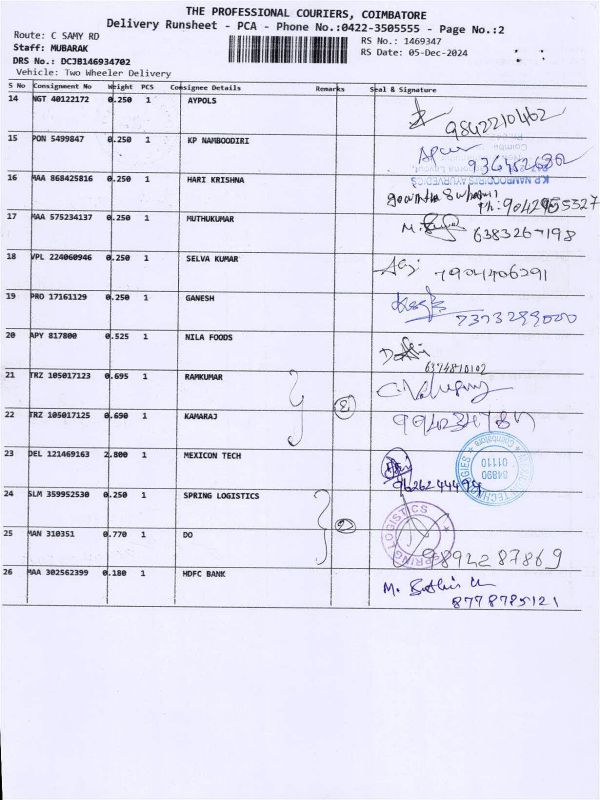 THE PROFESSIONAL COURIERS, COIMBATORE
Delivery Runsheet - PCA - Phone No.:0422-3505555 - Page No.:2
Route: C SAMY RD
RS No.: 1469347
Staff: MUBARAK
RS Date: 05-Dec-2024
DRS No.: DCJB146934702
Vehicle: Two Wheeler Delivery
S No Consignment No Weight PCS Consignee Details Remarks Seal & Signature
14 NGT 40122172 0.250 1 AYPOLS
9842210462
15 PON 5499847 0.250 1 KP NAMBOODIRI
K.P. NAMBOODIRIS AYURVEDICS
16 MAA 868425816 0.250 1 HARI KRISHNA
Ph: 9042955527
17 MAA 575234137 0.250 1 MUTHUKUMAR
M. 6383267198
18 VPL 224060946 0.250 1 SELVA KUMAR
7904406291
19 PRO 17161129 0.250 1 GANESH
7373299000
20 APY 817800 0.525 1 NILA FOODS
6374870102
21 TRZ 105017123 0.695 1 RAMKUMAR
22 TRZ 105017125 0.690 1 KAMARAJ
23 DEL 121469163 2.800 1 MEXICON TECH
TECHNOLOGIES
Coimbatore
24 SLM 359952530 0.250 1 SPRING LOGISTICS
SPRING LOGISTICS
25 MAN 310351 0.770 1 DO
9894287869
26 MAA 302562399 0.180 1 HDFC BANK
M.
8778785121